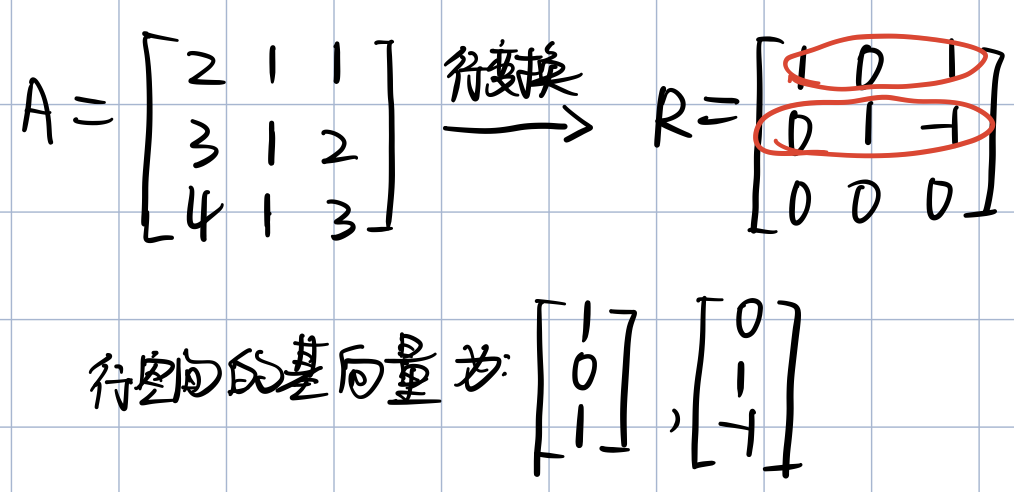 A = [2 1 1; 3 1 2; 4 1 3] 行变换 → R = [1 0 1; 0 1 -1; 0 0 0]
行空间的基向量为: [1; 0; 1], [0; 1; -1]